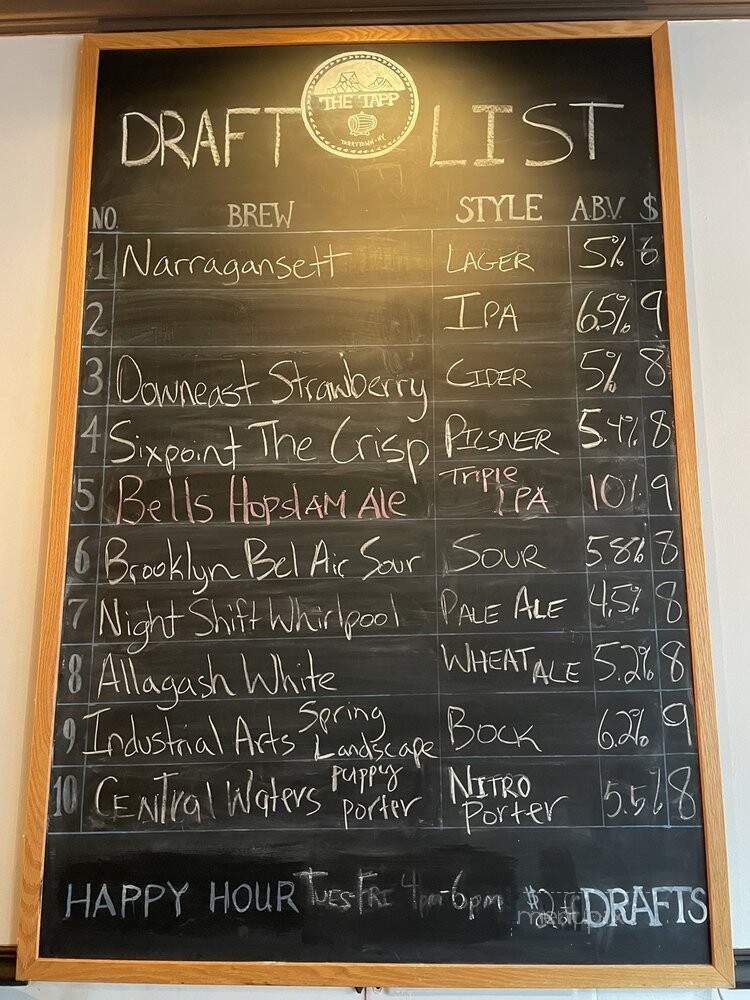 THE TAPP
TARRYTOWN, NY
DRAFT LIST
NO. BREW STYLE A.B.V. $
1 Narragansett LAGER 5% 6
2 IPA 6.5% 9
3 Downeast Strawberry CIDER 5% 8
4 Sixpoint The Crisp PILSNER 5.4% 8
5 Bells HopslAM Ale Triple IPA 10% 9
6 Brooklyn Bel Air Sour SOUR 5.8% 8
7 Night Shift Whirlpool PALE ALE 4.5% 8
8 Allagash White WHEAT ALE 5.2% 8
9 Industrial Arts Spring Landscape BOCK 6.2% 9
10 CENTRAL WATERS puppy porter NITRO porter 5.5% 8
HAPPY HOUR TUES-FRI 4pm-6pm $2 off DRAFTS